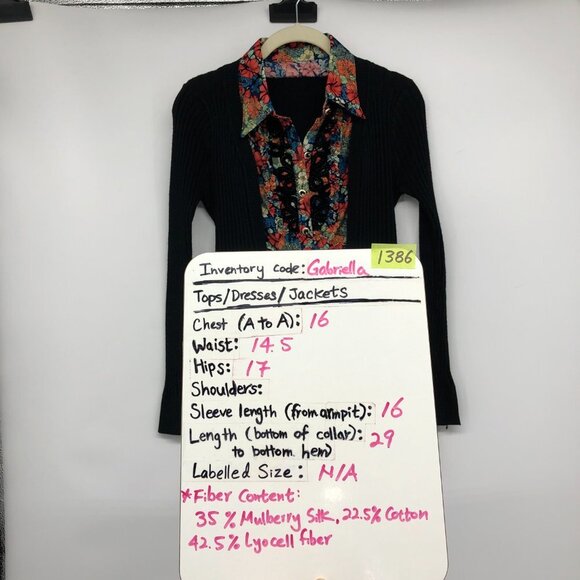 1386
Inventory code: Gabriella
Tops/Dresses/Jackets
Chest (A to A): 16
Waist: 14.5
Hips: 17
Shoulders:
Sleeve length (from armpit): 16
Length (bottom of collar): 29
to bottom hem)
Labelled Size: N/A
*Fiber Content:
35 % Mulberry Silk, 22.5% Cotton
42.5% Lyocell fiber